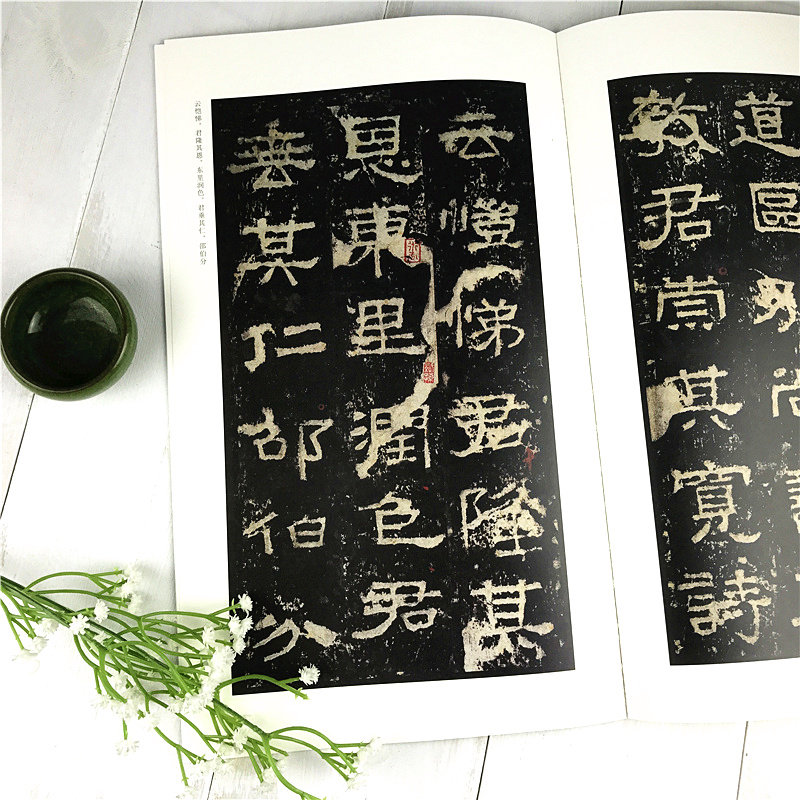 道區
教君崇其寬詩
云愷悌君隆其
恩東里潤色君
垂其仁邵伯分
云恺悌，君隆其恩，东里润色，君垂其仁，邵伯分